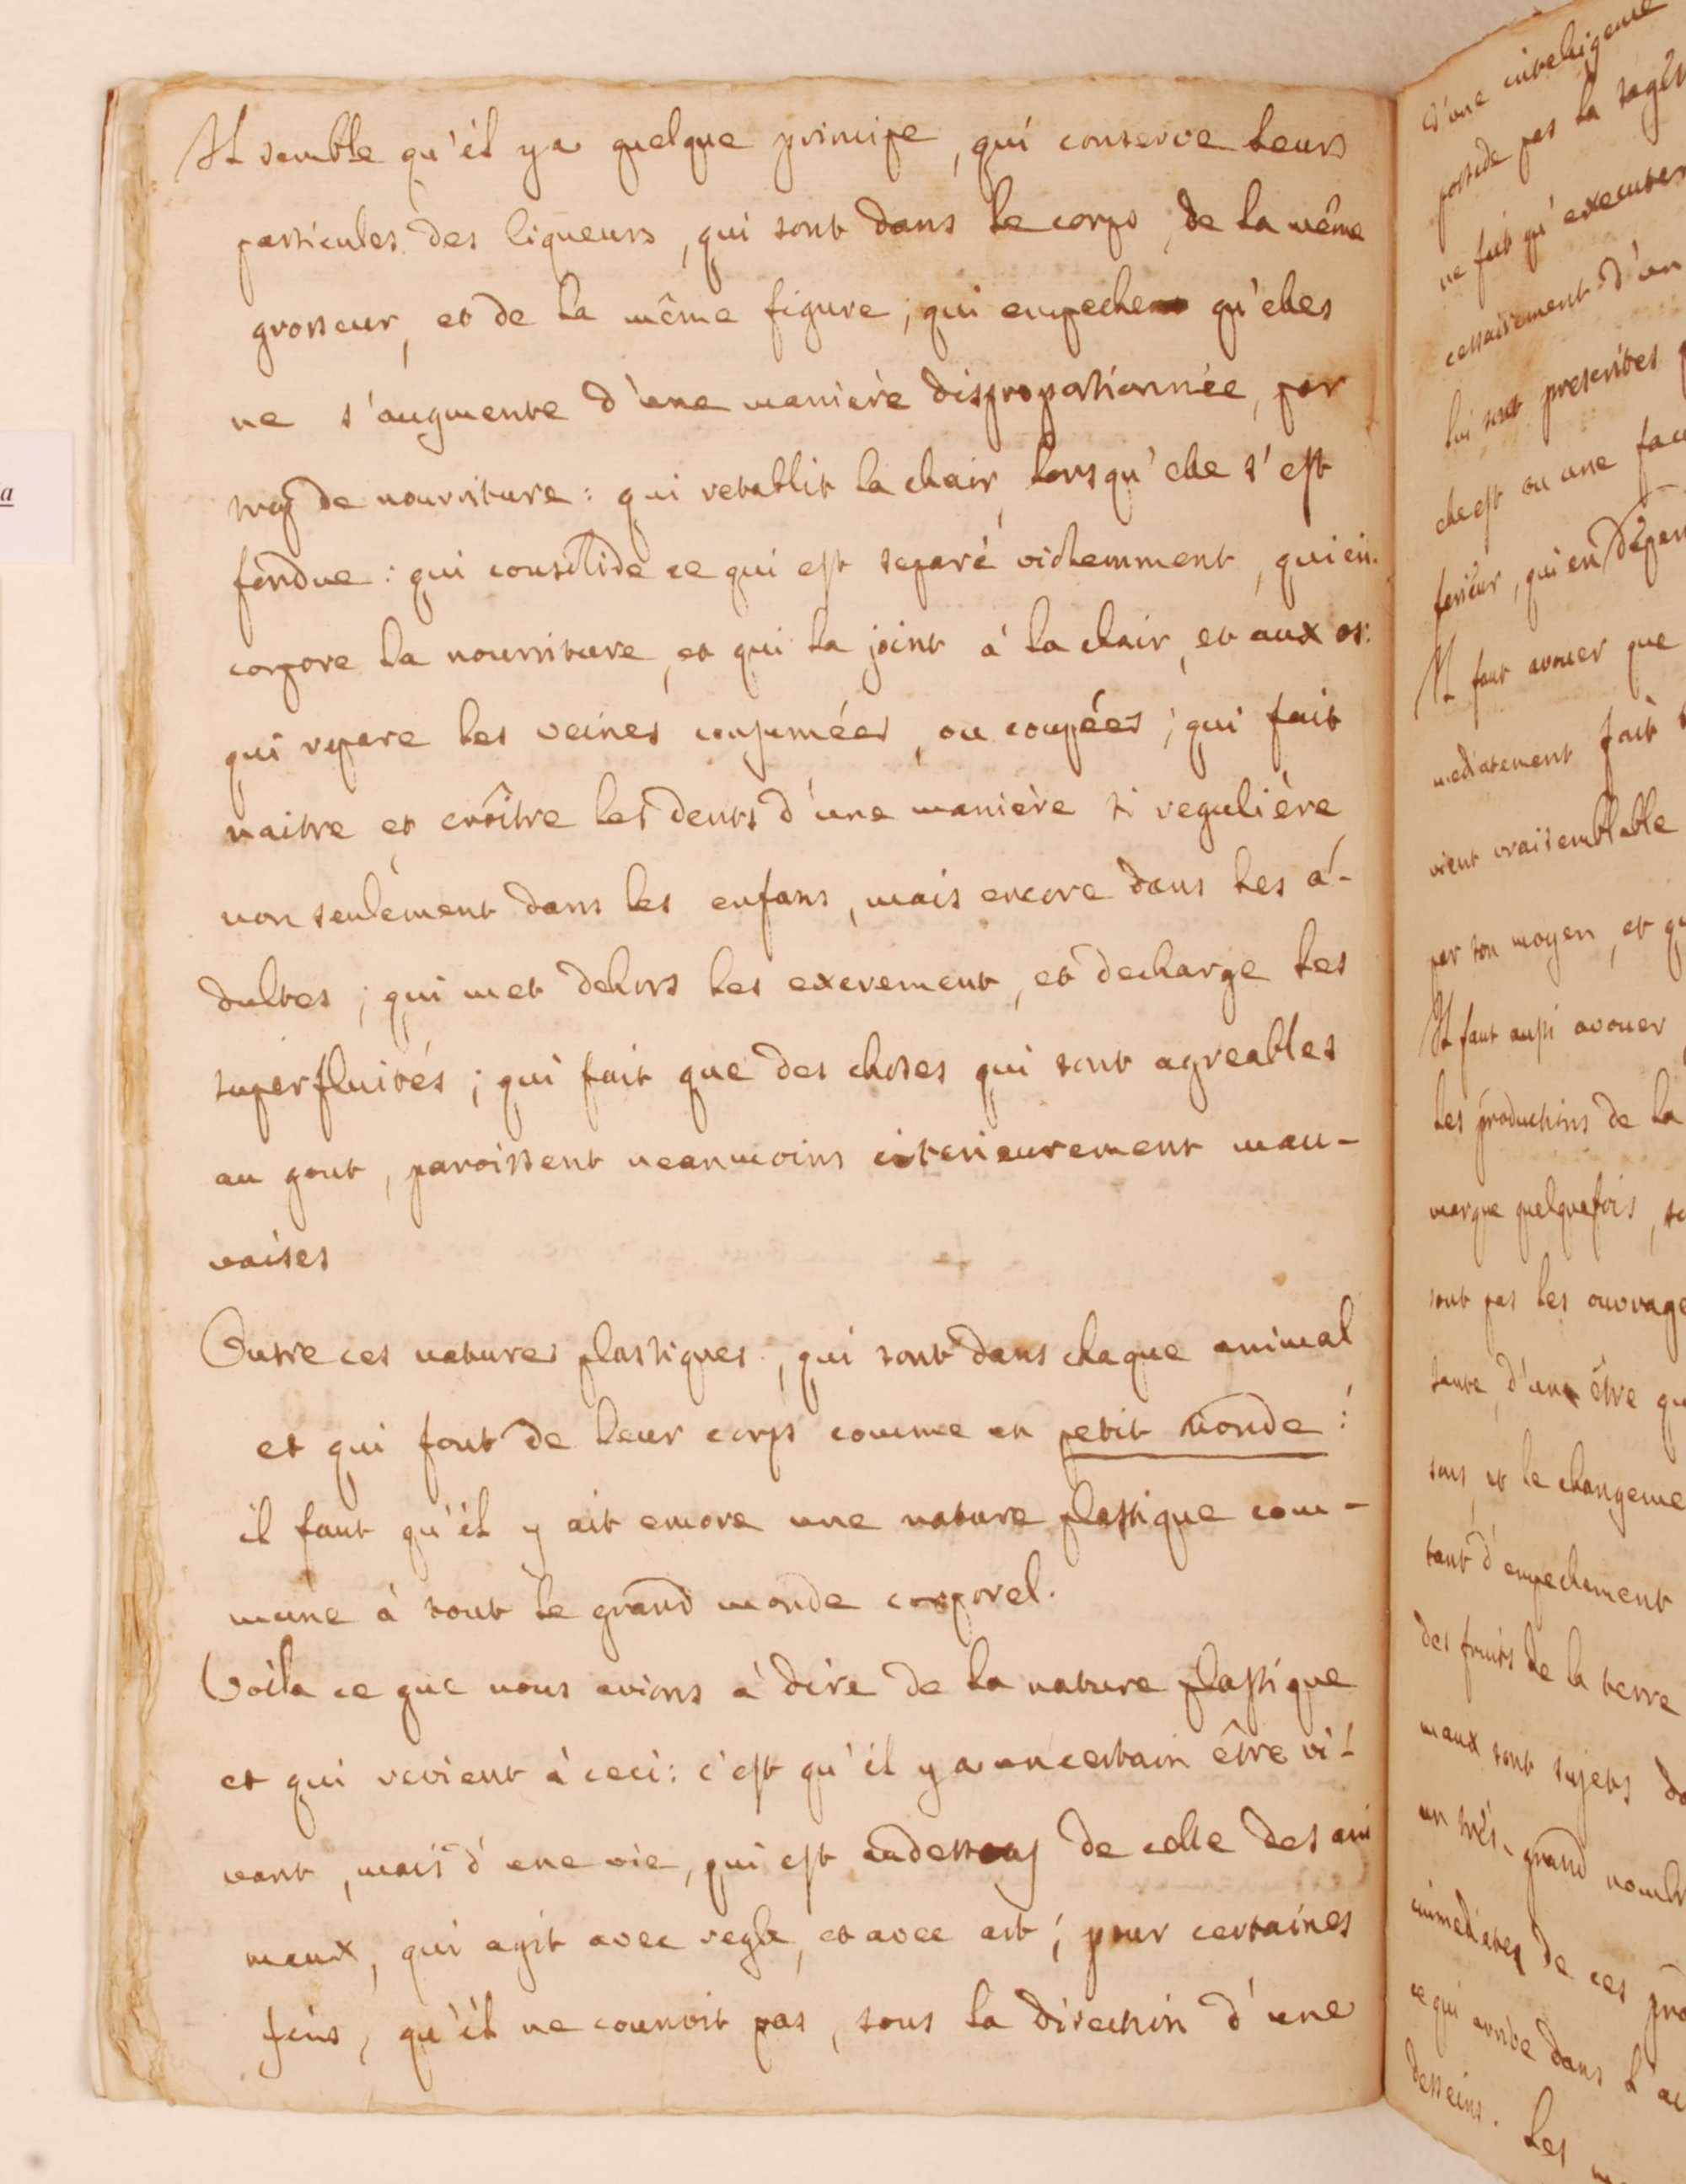 Il semble qu'il y a quelque principe, qui conserve leurs
particules des liqueurs, qui sont dans le corps, de la même
grosseur, et de la même figure; qui empeche qu'elles
ne s'augmente d'une manière disproportionnée, par
trop de nourriture: qui retablit la chair, lorsqu'elle s'est
fondue: qui consolide ce qui est separé violemment, qui in-
corpore la nourriture, et qui la joint à la chair, et aux os:
qui repare les veines consumées, ou coupées; qui fait
naitre et croître les dents d'une manière si regulière,
non seulement dans les enfans, mais encore dans les a-
dultes; qui met dehors les excrement, et decharge les
superfluités; qui fait que des choses qui sont agreables
au gout, paroissent neanmoins interieurement mau-
vaises
Outre ces natures plastiques, qui sont dans chaque animal
et qui font de leur corps comme un petit monde:
il faut qu'il y ait encore une nature plastique com-
mune à tout le grand monde corporel.
Voila ce que nous avions à dire de la nature plastique
et qui revient à ceci: c'est qu'il y a un certain être vi-
vant, mais d'une vie, qui est audessous de celle des ani
maux, qui agit avec regle, et avec art, pour certaines
fins, qu'il ne connoit pas, sous la direction d'une
d'une intelligence
possede pas la sages
ne fait qu'executer
cessairement d'un
lui sont prescrites
elle est ou une facu
ferieur, qui en depen
Il faut avouer que
mediatement fait
vient vraisemblable
par son moyen, et qu
Il faut aussi avouer
les productions de la
marque quelquefois, so
sont pas les ouvrage
sante, d'un être qu
sons, et le changeme
tant d'empechement
des fruits de la terre
maux sont sujets da
un très-grand nombr
immediates de ces pro
ce qui arrive dans l'
desseins. Les
a